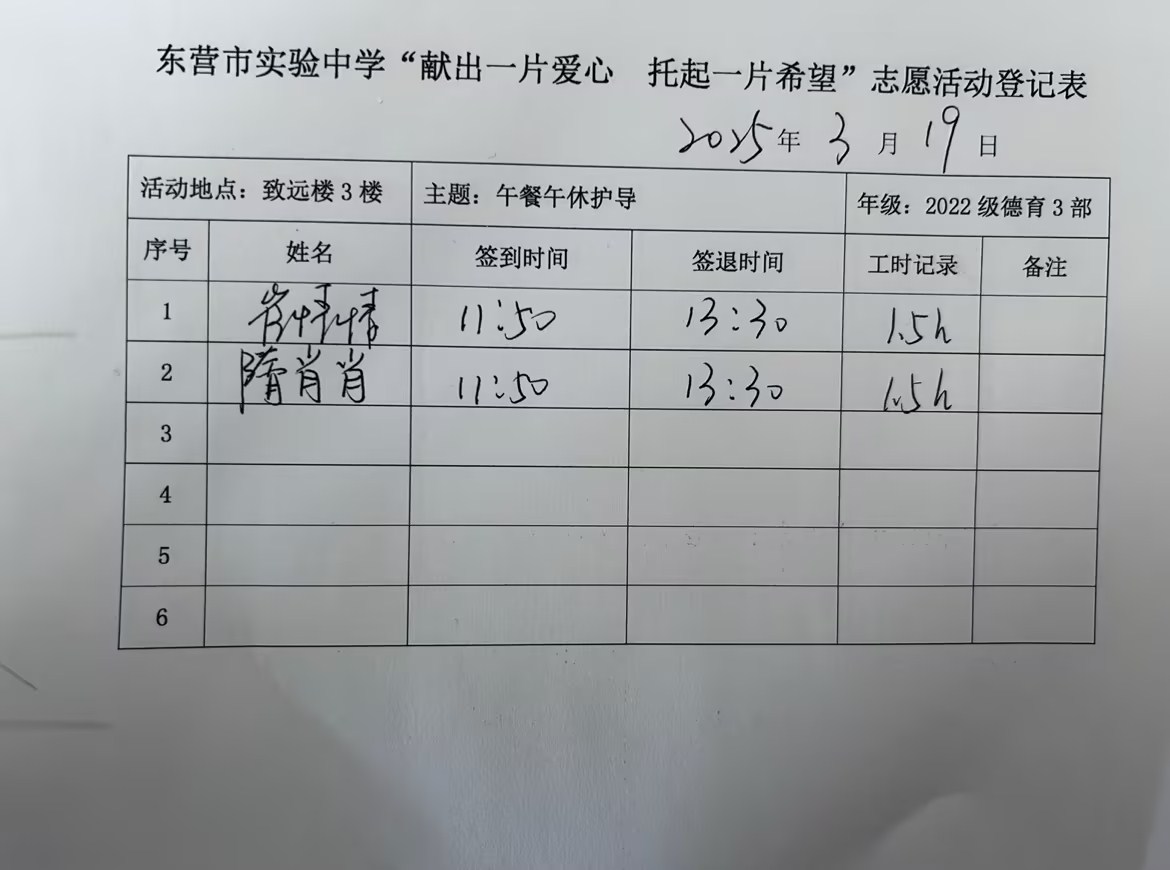 东营市实验中学“献出一片爱心 托起一片希望”志愿活动登记表
2025年 3月 19日
活动地点：致远楼3楼 主题：午餐午休护导 年级：2022级德育3部
序号 姓名 签到时间 签退时间 工时记录 备注
1 11:50 13:30 1.5h
2 隋肖肖 11:50 13:30 1.5h
3
4
5
6